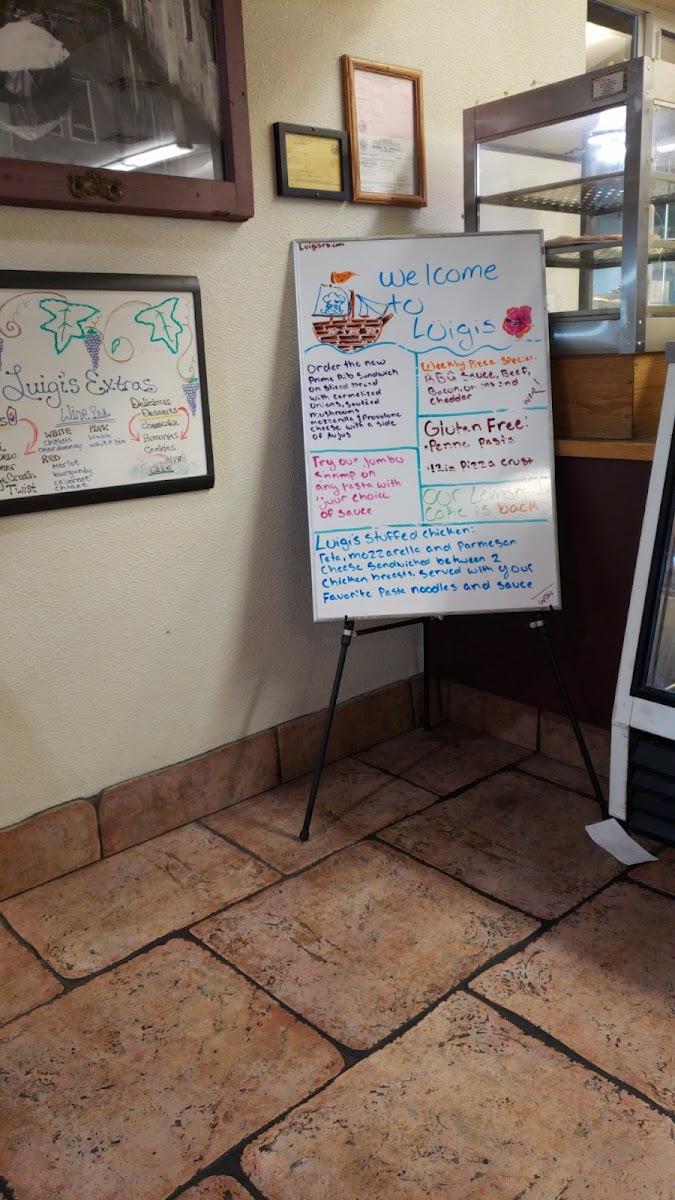 Luigisrb.com
Welcome
to
Luigis
Order the new
Prime Rib Sandwich
on sliced bread
with carmelized
onions, sautied
mushrooms
mozzarella & Provalone
cheese with a side
of Aujus
Try our jumbo
shrimp on
any pasta with
your choice
of sauce
Weekly Pizza Special:
BBQ Sauce, Beef,
Bacon, onions and
cheddar
Gluten Free:
• Penne Pasta
• 12in Pizza crust
Our Lemon
Cake is back
Luigi's Stuffed Chicken:
Feta, mozzarella and Parmesan
Cheese sandwiched between 2
Chicken breasts. Served with your
Favorite Pasta noodles and sauce
Luigi's Extras
Wine
WHITE
Chablis
chardonnay
RED
Merlot
burgundy
cabernet
chianti
PINK
blush
white zin
Delicious
Desserts
cheesecake
Brownies
Cookies
Cake
Crush
Twist